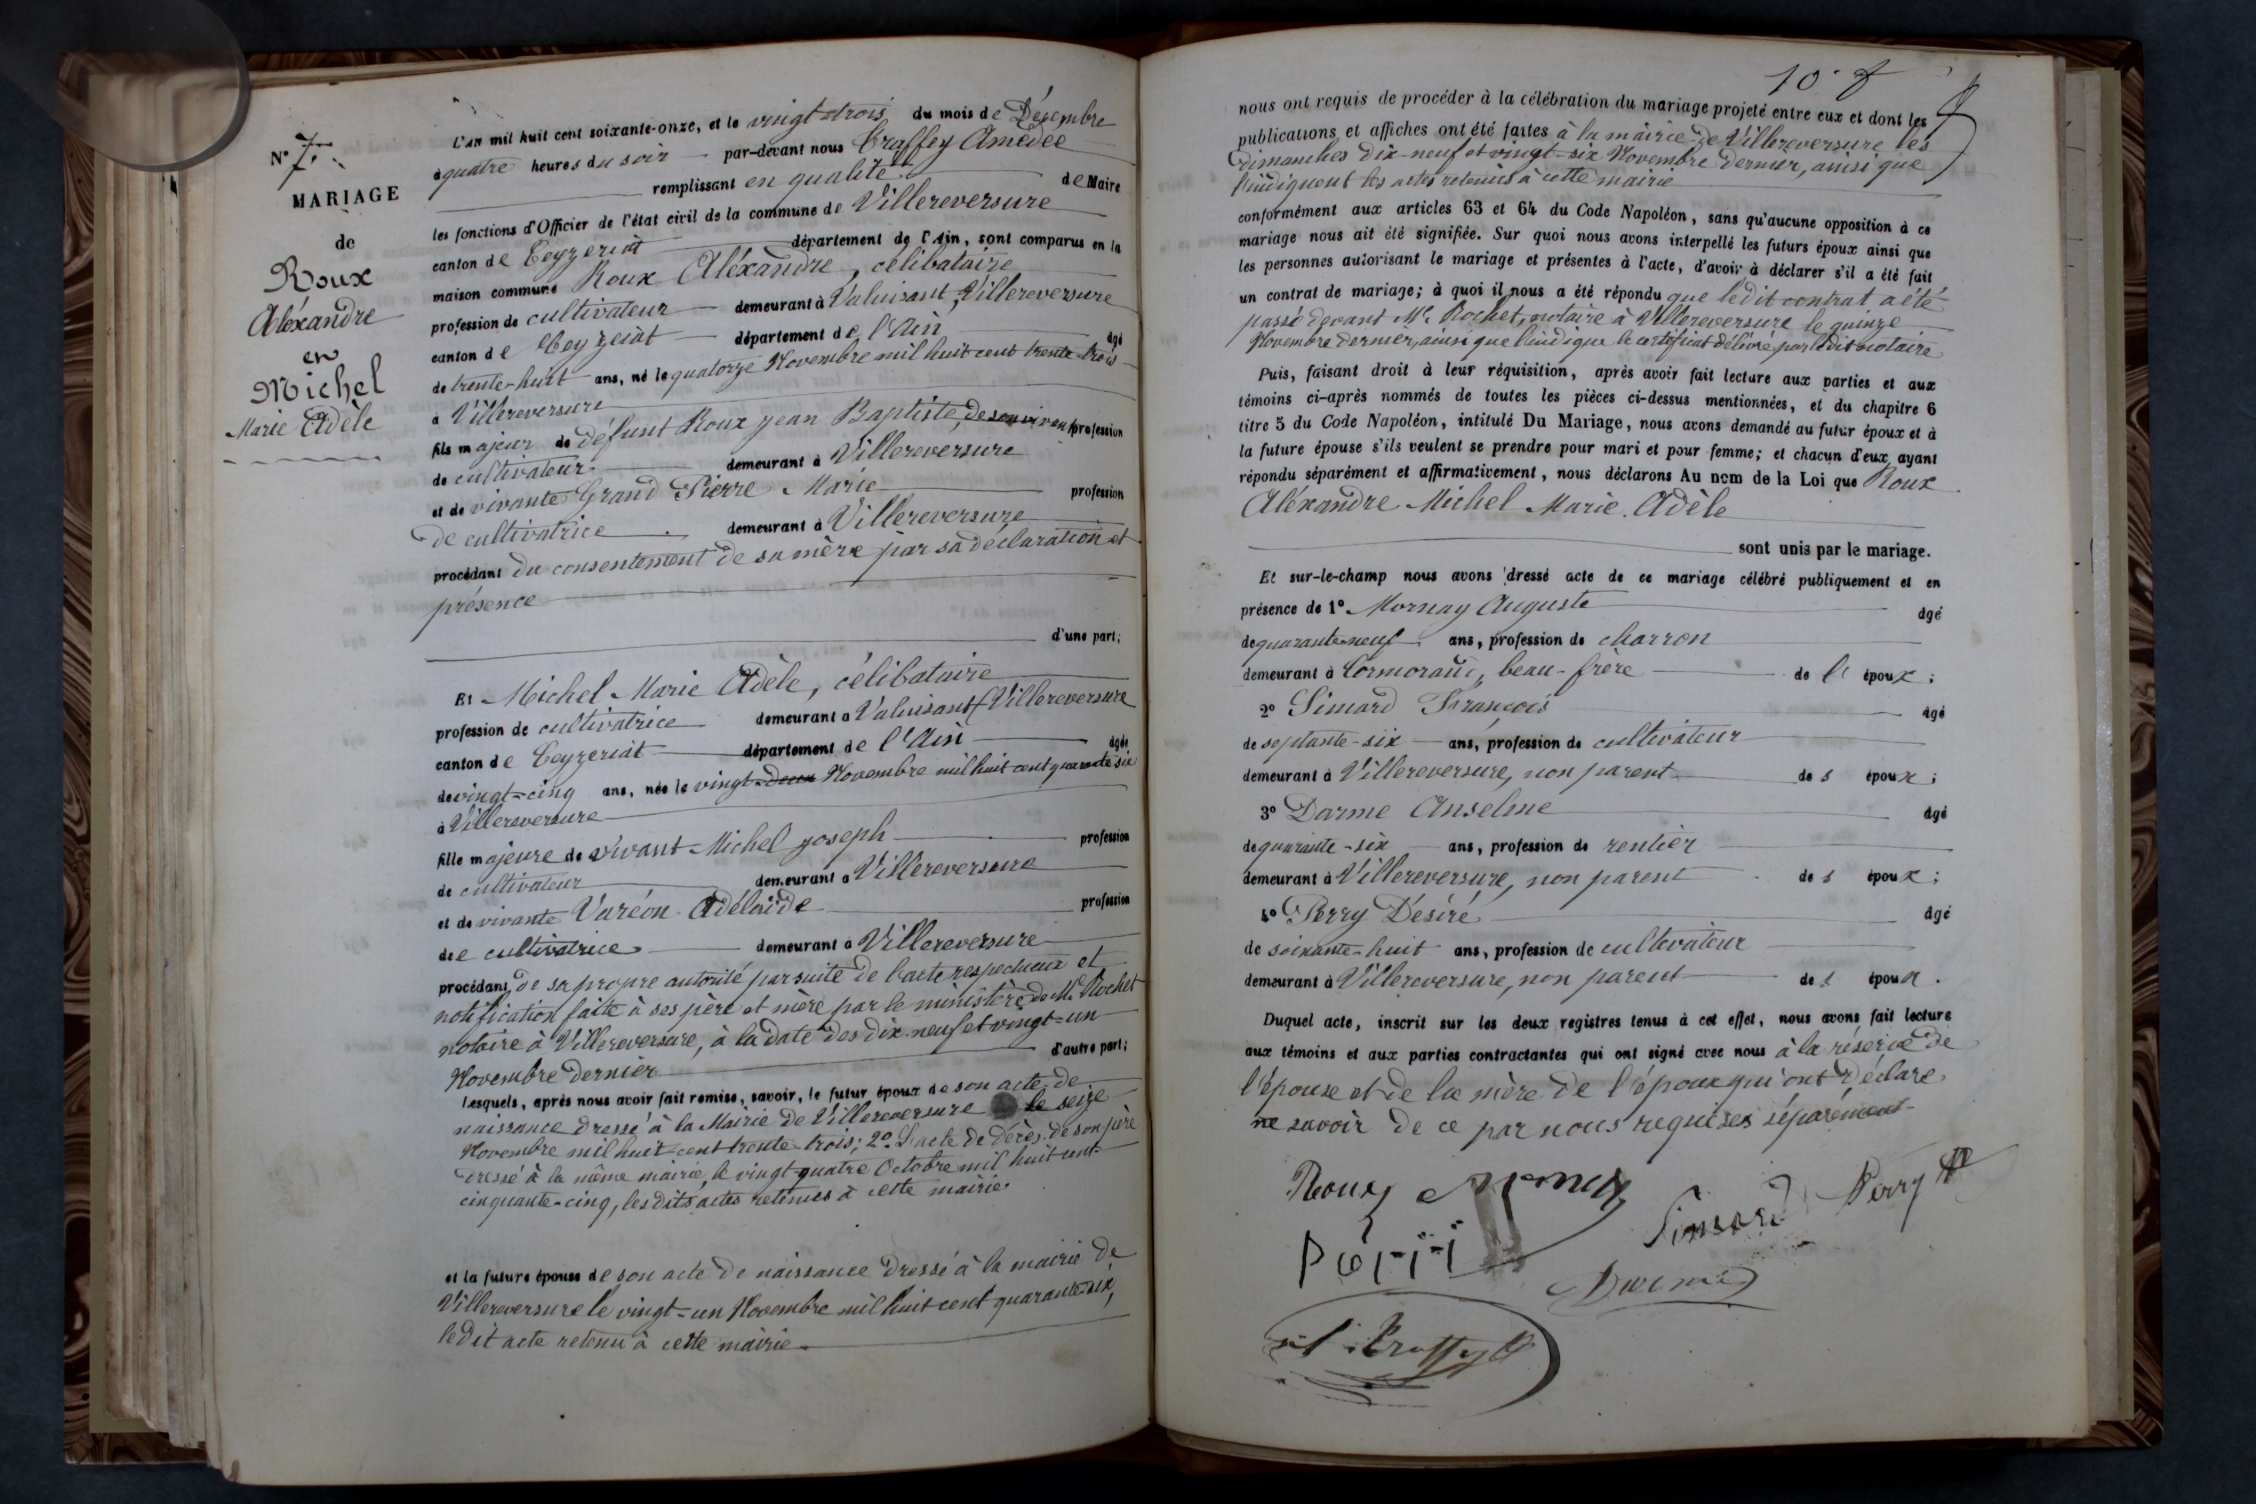 N° 7.
MARIAGE
de
Roux
Aléxandre
et
Michel
Marie Adèle
L'an mil huit cent soixante-onze, et le vingt-trois du mois de Décembre
à quatre heures du soir par-devant nous Craffey Amédée
remplissant en qualité de Maire
les fonctions d'Officier de l'état civil de la commune de Villereversure
canton de Ceyzeriat département de l'Ain, sont comparus en la
maison commune Roux Aléxandre, célibataire
profession de cultivateur demeurant à Valuisant, Villereversure
canton de Ceyzeriat département de l'Ain âgé
de trente-huit ans, né le quatorze Novembre mil huit cent trente-trois
à Villereversure
fils majeur de défunt Roux jean Baptiste, de son vivant profession
de cultivateur demeurant à Villereversure
et de vivante Grand Pierre Marie profession
de cultivatrice demeurant à Villereversure
procédant du consentement de sa mère par sa déclaration et
présence
d'une part;
Et Michel Marie Adèle, célibataire
profession de cultivatrice demeurant à Valuisant (Villereversure
canton de Ceyzeriat département de l'Ain âgée
de vingt-cinq ans, née le vingt-deux Novembre mil huit cent quarante six
à Villereversure
fille majeure de vivant Michel joseph profession
de cultivateur demeurant à Villereversure
et de vivante Varéon Adélaïde profession
de cultivatrice demeurant à Villereversure
procédant de sa propre autorité par suite de l'acte respectueux et
notification faite à ses père et mère par le ministère de Me Rochet
notaire à Villereversure, à la date des dix-neuf et vingt-un
Novembre dernier d'autre part;
Lesquels, après nous avoir fait remise, savoir, le futur époux de son acte de
naissance dressé à la Mairie de Villereversure le seize
Novembre mil huit cent trente-trois; 2° L'acte de décès de son père
dressé à la même mairie, le vingt quatre Octobre mil huit cent
cinquante-cinq, lesdits actes retenus à cette mairie
et la future épouse de son acte de naissance dressé à la mairie de
Villereversure le vingt-un Novembre mil huit cent quarante-six,
ledit acte retenu à cette mairie
10.
nous ont requis de procéder à la célébration du mariage projeté entre eux et dont les
publications et affiches ont été faites à la mairie de Villereversure les
Dimanches Dix-neuf et vingt-six Novembre dernier, ainsi que
l'indiquent les actes retenus à cette mairie
conformément aux articles 63 et 64 du Code Napoléon, sans qu'aucune opposition à ce
mariage nous ait été signifiée. Sur quoi nous avons interpellé les futurs époux ainsi que
les personnes autorisant le mariage et présentes à l'acte, d'avoir à déclarer s'il a été fait
un contrat de mariage; à quoi il nous a été répondu que ledit contrat a été
passé devant Me Rochet, notaire à Villereversure le quinze
Novembre dernier, ainsi que l'indique le certificat délivré par ledit notaire
Puis, faisant droit à leur réquisition, après avoir fait lecture aux parties et aux
témoins ci-après nommés de toutes les pièces ci-dessus mentionnées, et du chapitre 6
titre 5 du Code Napoléon, intitulé Du Mariage, nous avons demandé au futur époux et à
la future épouse s'ils veulent se prendre pour mari et pour femme; et chacun d'eux ayant
répondu séparément et affirmativement, nous déclarons Au nom de la Loi que Roux
Aléxandre Michel Marie Adèle
sont unis par le mariage.
Et sur-le-champ nous avons dressé acte de ce mariage célébré publiquement et en
présence de 1° Mornay Auguste âgé
de quarante-neuf ans, profession de charron
demeurant à Cormoranc, beau-frère de l'époux;
2° Simard François âgé
de septante-six ans, profession de cultivateur
demeurant à Villereversure, non parent des époux;
3° Darme Anselme âgé
de quarante-six ans, profession de rentier
demeurant à Villereversure, non parent des époux;
4° Perry Désiré âgé
de soixante-huit ans, profession de cultivateur
demeurant à Villereversure, non parent des époux.
Duquel acte, inscrit sur les deux registres tenus à cet effet, nous avons fait lecture
aux témoins et aux parties contractantes qui ont signé avec nous à la réserve de
l'épouse et de la mère de l'époux qui ont déclaré
ne savoir de ce par nous requises séparément
Roux Mornay
Simard Perry
Darme
Craffey